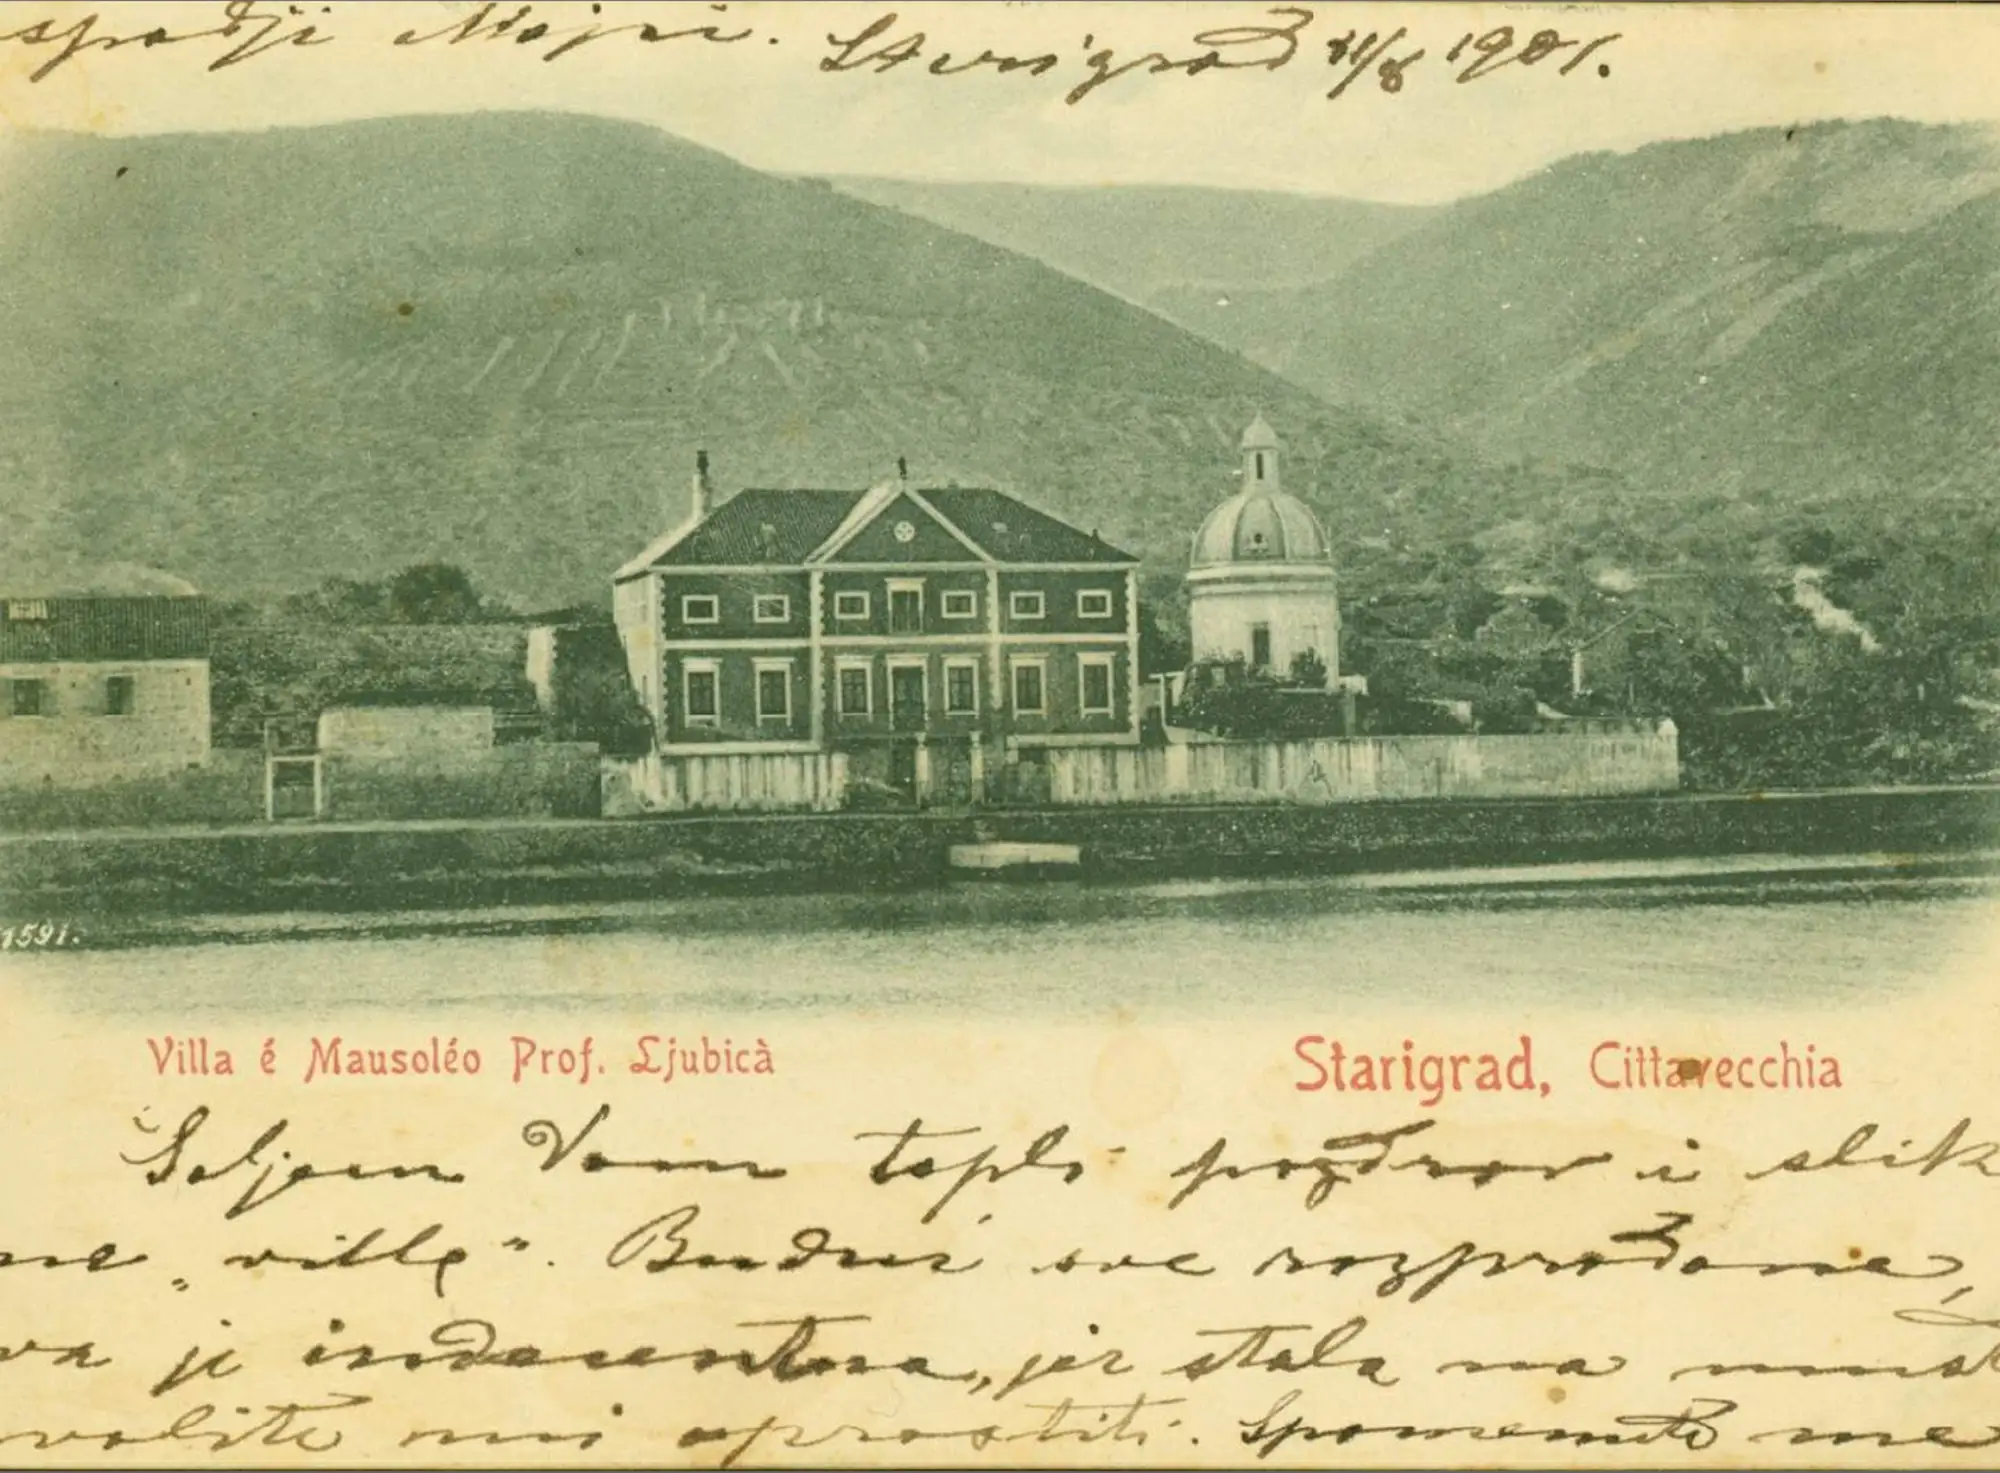 spodji Mojri. Starigrad 11/8 1901.
1591.
Villa é Mausoléo Prof. Ljubicà
Starigrad, Cittavecchia
Šaljem Vam topli pozdrav i slik
ne „ville". Buduć sve rozprodane,
va je indecentna, jer stala na must
volite mi oprostiti. Spomenite me